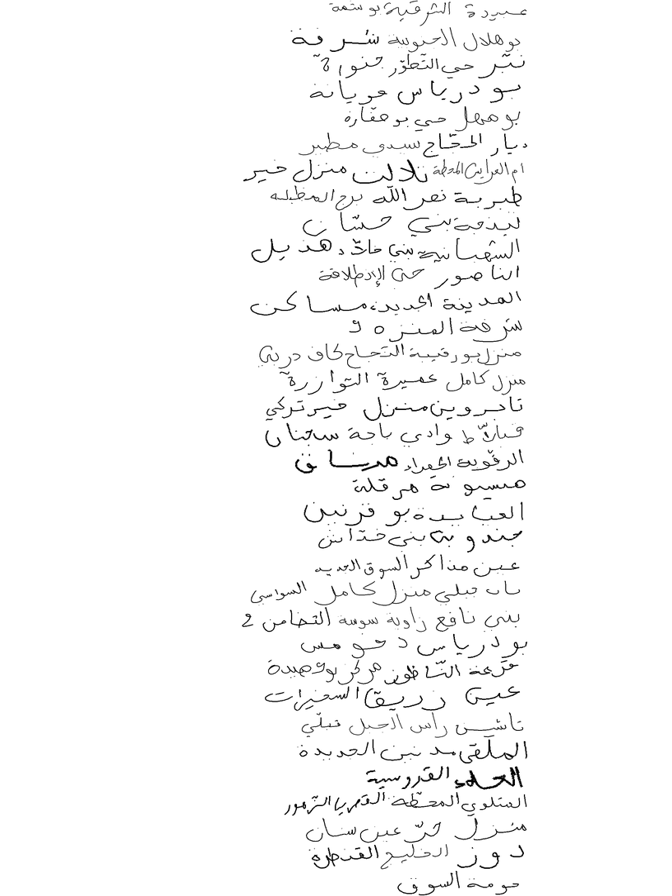 عبيدة الشرقية بوسمة
بوهلال الحبوسة شرفة
نبر حي التطوّر خنوارة
بودرياس فريانة
بومهل حي بوغفارة
ديار الحجّاج سيدي مطير
ام العرايس المحطة تلالت منزل خير
طبربة نصر الله برج
ليذمة بني حسّان
الشهبانية بني خلاّد هذيل
الناضور حي
المدينة الجديدة مساكن
شرفة المنزه 9
منزل بورقيبة النجاح كاف دربي
منزل كامل عميرة التوازرة
تاجروين منزل خير تركي
قبلاّط وادي باجة سجنان
الرقوبة الحمراء مرناق
ميسيونة مرقلة
العبابدة بوقرنين
جندوبة بني خداش
عين مذاكر السوق الجديد
باب قبلي منزل كامل السواسي
بني نافع زاوية سوسة التضامن 2
بودرياس دحومس
قرعة النّاظور مركز بوعصيدة
عين زريق السعيرات
تاشين راس الجبل قبلّي
الملّقى مدنين الجديدة
الحامة القدوسية
المتلوي المحطّة القصر يا الزهور
منزل حرّ عين سنان
دوز الخليج القنطرة
حومة السوق